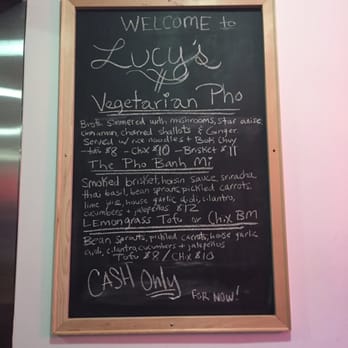 WELCOME to
Lucy's
Vegetarian Pho
Broth simmered with mushrooms, star anise,
cinnamon, charred shallots & Ginger
Served w/ rice noodles + Bok Choy
- tofu $8 - Chix $10 - Brisket $11
The Pho Banh Mi
Smoked brisket, hoisin sauce, sriracha,
thai basil, bean sprouts, pickled carrots,
lime jus, house garlic aioli, cilantro,
cucumbers + jalapeños $12
Lemongrass Tofu or Chix BM
Bean Sprouts, pickled carrots, house garlic
aioli, cilantro, cucumbers + jalapeños
Tofu $8 / Chix $10
CASH Only
FOR NOW!